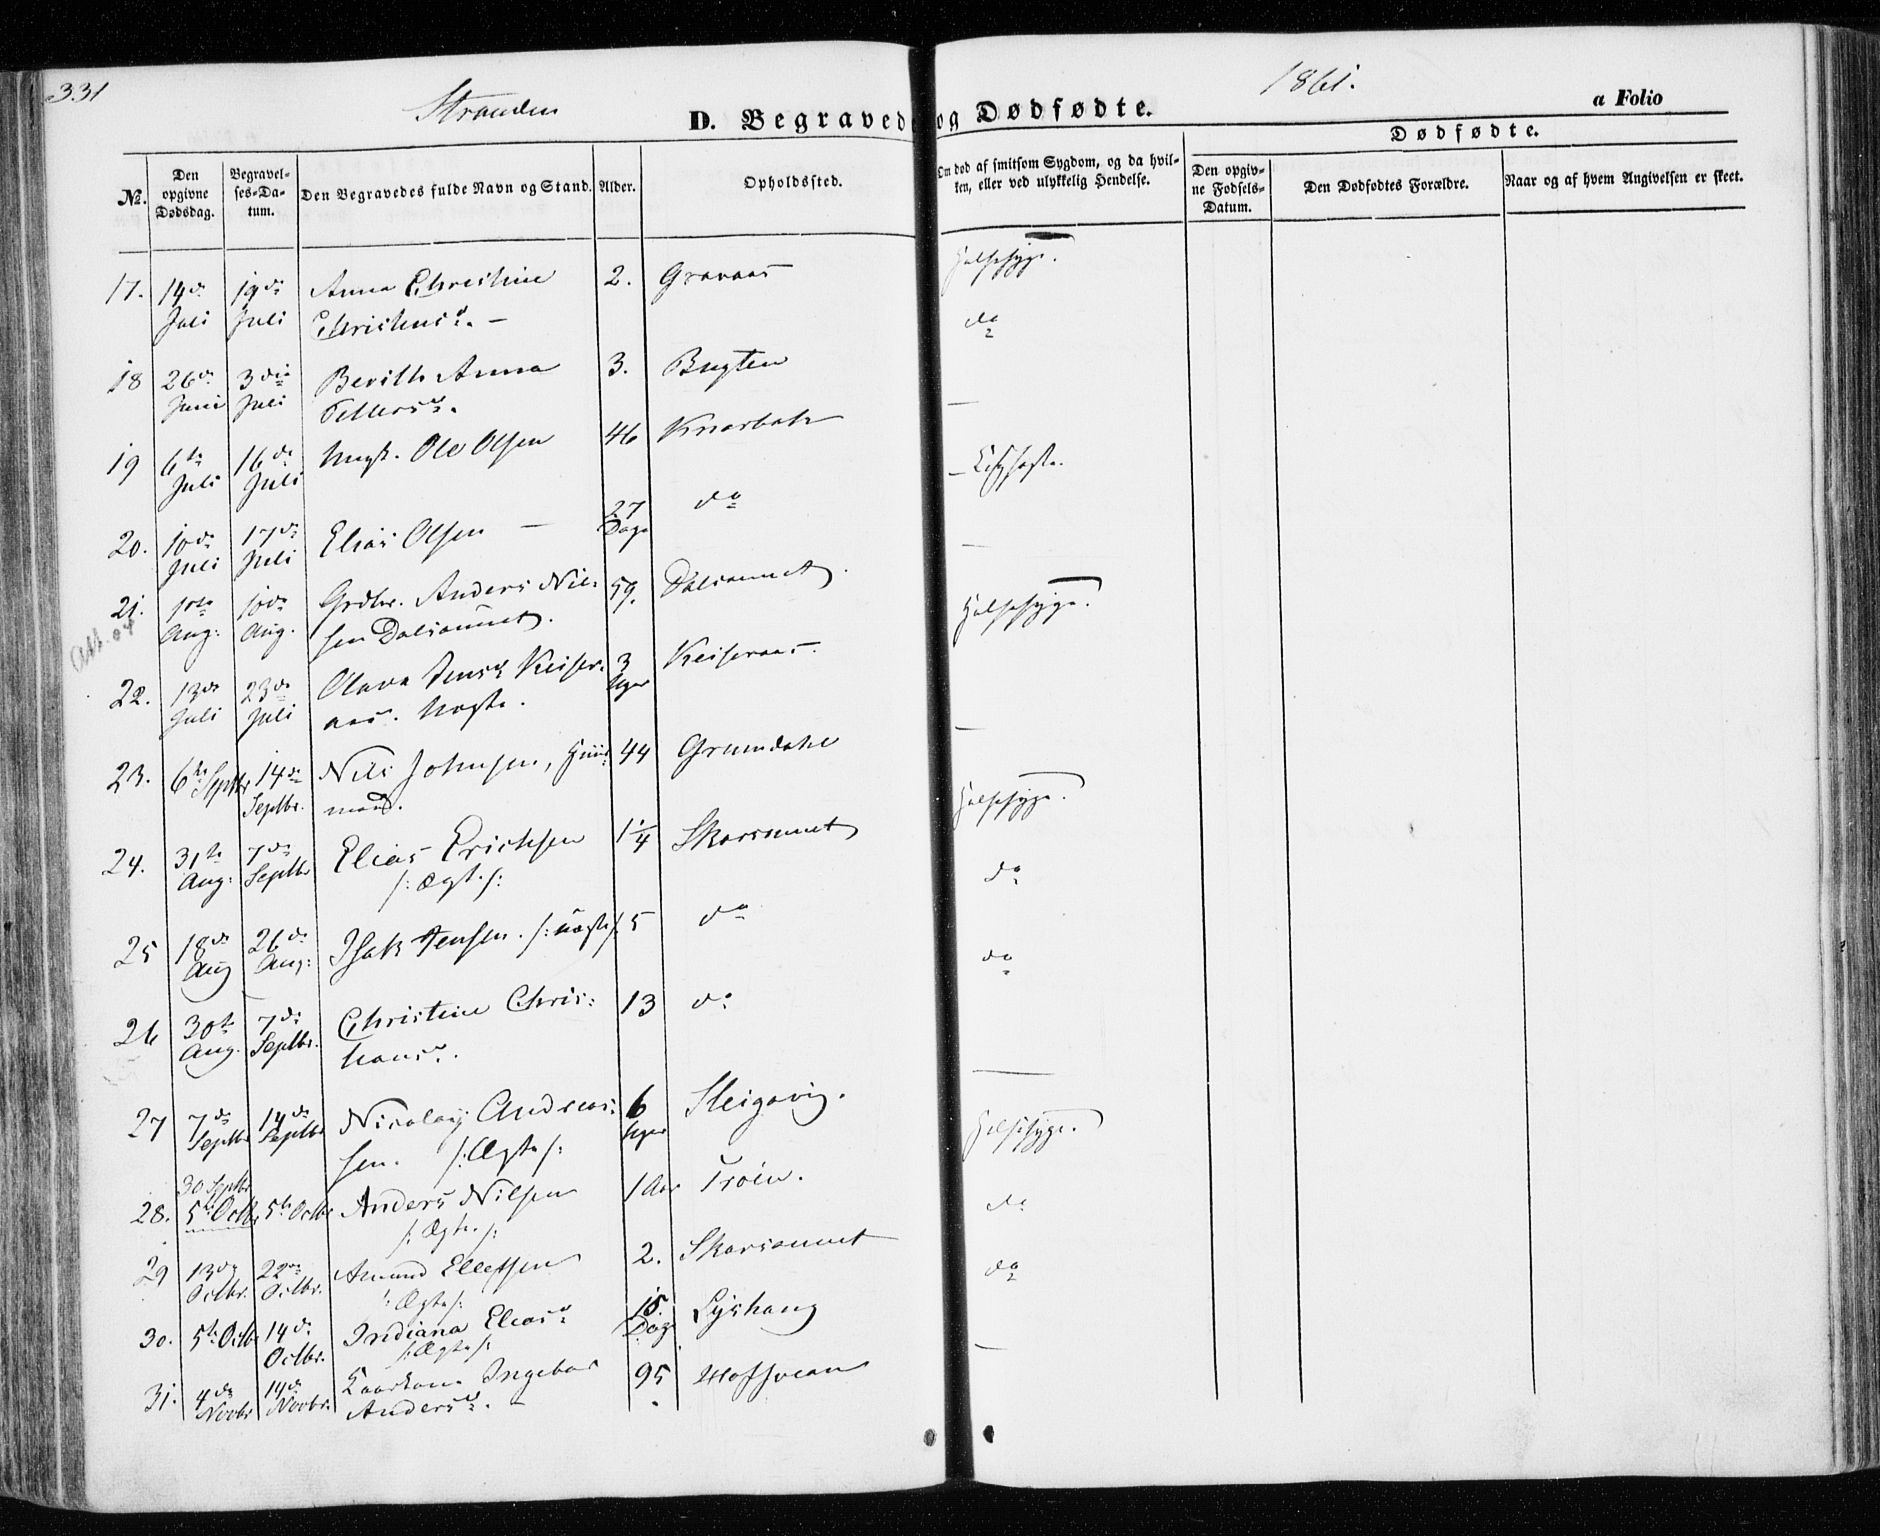 331
Stranden
1861.
D. Begravede og Dødfødte.
a Folio
No.
Den opgivne Dødsdag.
Begravelses-Datum.
Den Begravedes fulde Navn og Stand.
Alder.
Opholdssted.
Om død af smitsom Sygdom, og da hvilken, eller ved ulykkelig Hendelse.
Dødfødte.
Den opgivne Fødsels-Datum.
Den Dødfødtes Forældre.
Naar og af hvem Angivelsen er skeet.
17. 14de 19de Anna Christine 2. Gravaas Halssyge.
Juli Juli
18 26de 3die Berith Anna 3. Bugten do
Juni Juli Pettersd.
19 6te 16de Ungk. Ole Olsen 46 —
Juli Juli
20. 10de 17de Elias Olsen — 27 do
Juli Juli Dage
21. 1ste 10de Grdbr. Anders Nil- 59. Dalsaunet —
Aug. Aug. sen Dalsaunet.
22. 13de 23de Olava Jensd. Keiser- 3 Keiseraas. Halssyge.
Juli Juli aas. Uægte. Uger
23. 6te Septbr 14de Nils Johnsen, Huus- 44 Grumdahl —
Septbr. mand.
24. 31te 7de Elias Erichsen 1 1/4 Skarsaunet Halssyge.
Aug: Septbr /: Ægte :/
25 18de 26de Isak Jensen. /: Uægte :/ 5 do do
Aug Aug:
26 30te 7de Christine Chris- 13 do do
Aug. Septbr.
27 7de 14de Nicolay Andreas- 6 Sleigavig. —
Septbr Septbr sen. /: Ægte :/ Uger
30 Septbr
28. 5te Octbr 5te Octbr Anders Nilsen 1 Aar Trøen. Halssyge.
/: Ægte :/
29 13de 22de Amund Ellefsen 2. Skarsaunet do
Octbr. Octbr. /: Ægte :/
30. 5te Octbr 14de Indiana Eliasd. 15. Lyshaug do
Octbr. /: Ægte :/ Dage
31. 4de 14de Ingebor 95 —
Novbr Novbr. Andersd. —